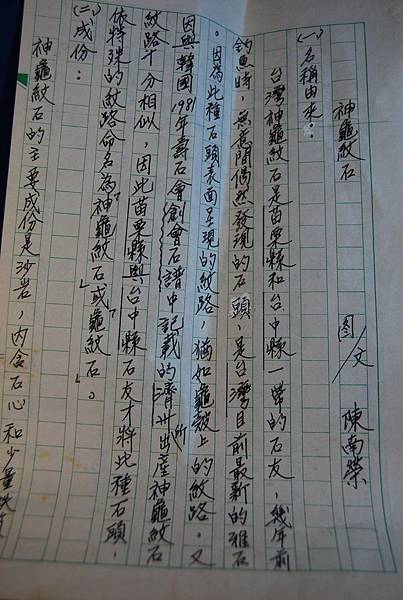 神龜紋石 图/文 陳南榮
(一)名稱由來：
台灣神龜紋石是苗栗縣和台中縣一帶的石友，幾年前
釣魚時，無意間偶然發現的石頭，是台灣目前最新的雅石
。因為此種石頭表面呈現的紋路，猶如龜殼上的紋路。又
因與韓國1981年壽石會創會石譜中記載的濟州所出產神龜紋石
紋路十分相似，因此苗栗縣與台中縣石友才將此種石頭，
依特殊的紋路命名為「神龜紋石」或「龜紋石」。
(二)成份：
神龜紋石的主要成份是沙岩，內含石心和少量